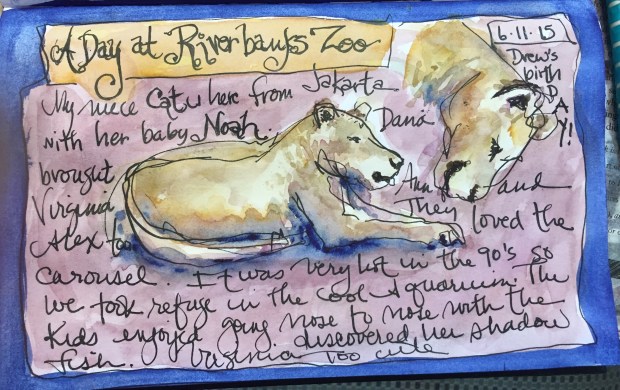 A Day at Riverbanks Zoo
6.11.15
Drew's
birth
D
A
Y!
My niece Caty here from Jakarta
with her baby Noah. Dana
brought Ann and
Virginia They loved the
Alex too
carousel. It was very hot in the 90's so
we took refuge in the cool Aquarium. The
kids enjoyed going nose to nose with the
fish. Virginia discovered her shadow
too cute